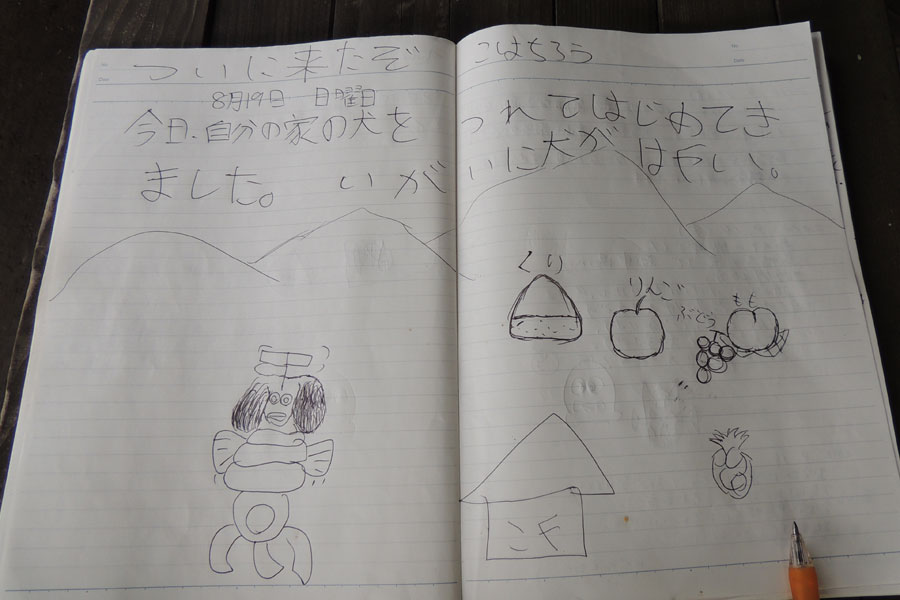 No.
Date
No.
Date
ついに来たぞ こはちろう
8月19日 日曜日
今日、自分の家の犬を つれてはじめてき
ました。 いが いに犬が はやい。
くり
りんご
ぶどう
もも
こや